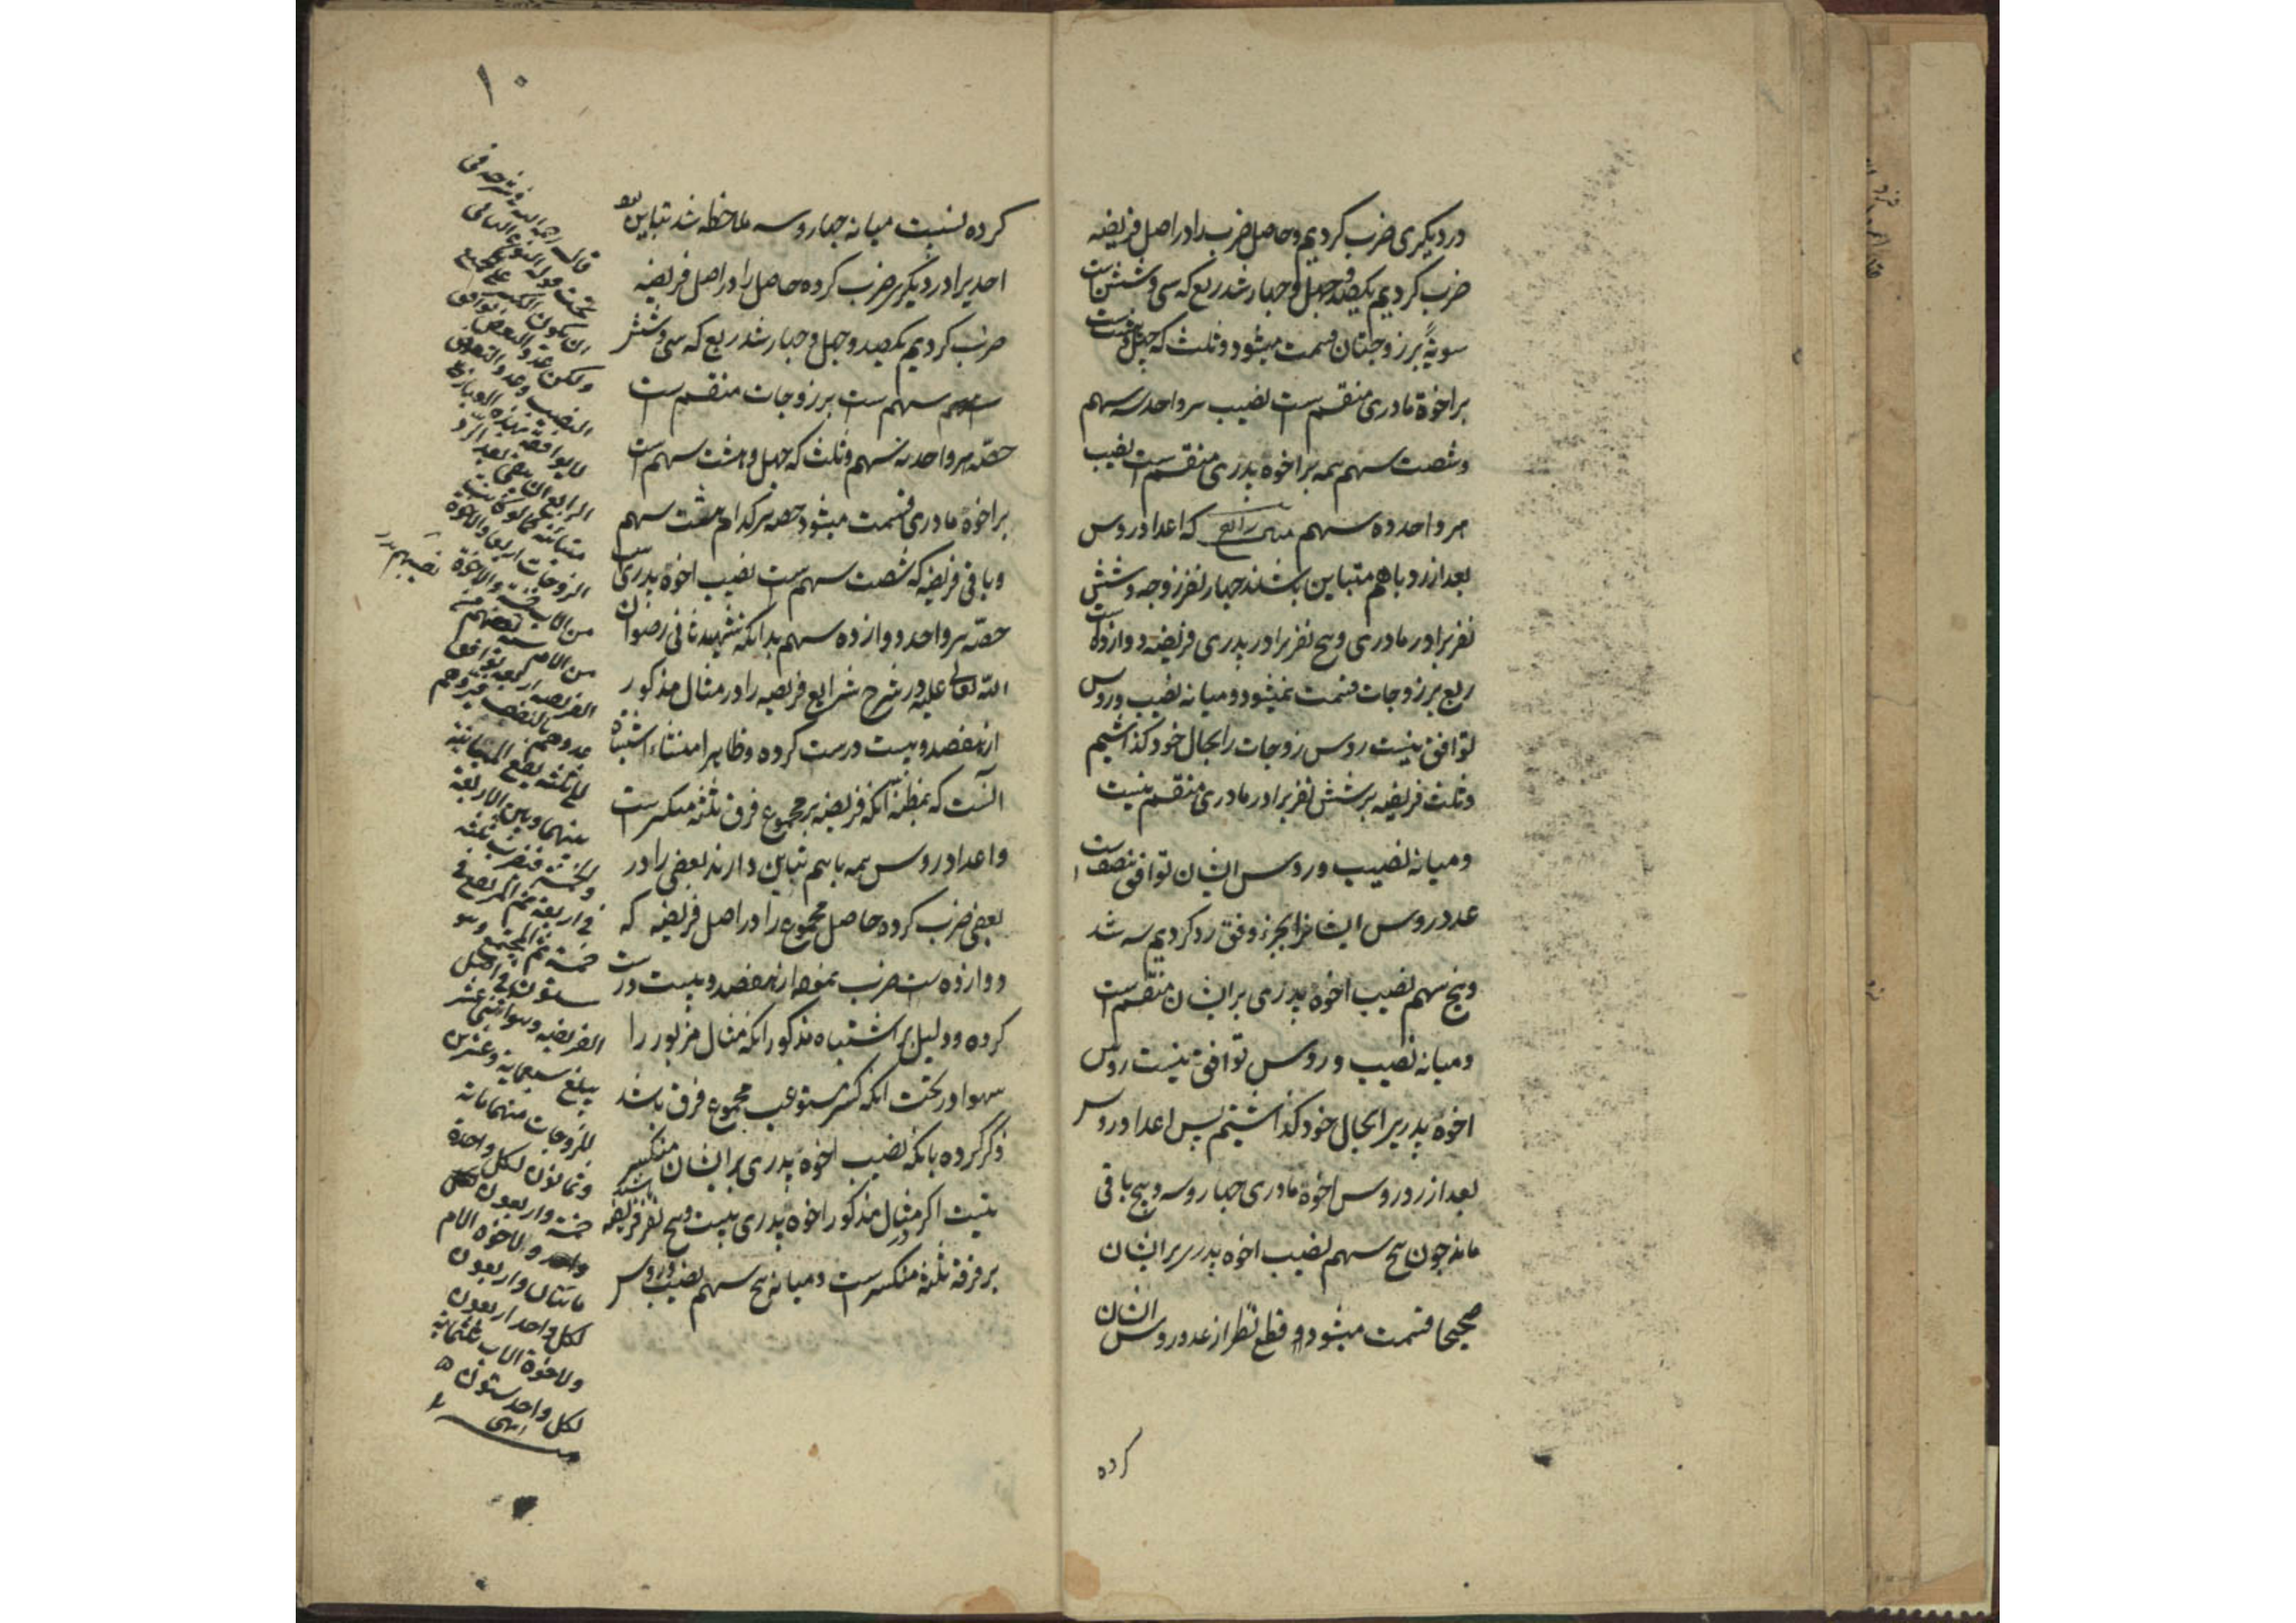 در دیکری ضرب کردیم و حاصل ضرب را در اصل فریضه
ضرب کردیم یکصد و چهل و چهار شد ربع که سی و شش است
سویةً بر زوجتان قسمت میشود و ثلث که چهل و هشت است
بر اخوة مادری منقسم است نصیب هر واحد سه سهم
و شصت سهم همه بر اخوه پدری منقسم است نصیب
هر واحد ده سهم مثال رابع که اعداد رؤس
بعد از رد باهم متباین باشند چهار نفر زوجه و شش
نفر برادر مادری و پنج نفر برادر پدری فریضه دوازده است
ربع بر زوجات قسمت نمیشود و میانه نصیب و روس
توافق نیست روس زوجات را بحال خود کذاشتیم
و ثلث فریضه بر شش نفر برادر مادری منقسم نیست
و میانه نصیب و روس ایشان توافق بنصف است
عدد روس ایشانرا بجزء وفق رد کردیم سه شد
و پنج سهم نصیب اخوه پدری بر ایشان منقسم است
و میانه نصیب و روس توافق نیست روس
اخوه پدریرا بحال خود کذاشتیم پس اعداد روس
بعد از رد روس اخوه مادری چهار و سه و پنج باقی
ماند چون پنج سهم نصیب اخوه پدری بر ایشان
صحیحا قسمت میشود و قطع نظر از عدد روس ایشان
کرده
۱۰
کرده نسبت میانه چهار و سه ملاحظه شد تباین بود
احدیرا در دیکری ضرب کرده حاصل را در اصل فریضه
ضرب کردیم یکصد و چهل و چهار شد ربع که سی و شش
سهم است بر زوجات منقسم است
حصّه هر واحد نه سهم و ثلث که چهل و هشت سهم است
بر اخوه مادری قسمت میشود حصه هر کدام هشت سهم
و باقی فریضه که شصت سهم است نصیب اخوه پدری است
حصّه هر واحد دوازده سهم بدانکه شهید ثانی رضوان
الله تعالی علیه در شرح شرایع فریضه را در مثال مذکور
از هفصد و بیست درست کرده و ظاهرا منشاء اشتباه
آنست که بمظنّه آنکه فریضه بر مجموع فرق ثلثه منکسر است
و اعداد روس همه باهم تباین دارند بعضی را در
بعضی ضرب کرده حاصل مجموع را در اصل فریضه که
دوازده است ضرب نموده از هفصد و بیست درست
کرده و دلیل بر اشتباه مذکور آنکه مثال مزبور را
سهوا در تحت آنکه کسر مستوعب مجموع فرق باشد
ذکر کرده بانکه نصیب اخوه پدری بر ایشان منکسر
نیست اکر در مثال مذکور اخوه پدری بیست و پنج نفر باشند فریضه
بر فرقه ثلثه منکسر است و میانه پنج سهم نصیب و روس
قال رحمه الله فی شرحه فی
تحت قوله النوع الثانی
ان یکون الکسر علی الجمیع
ولکن عدد البعض یوافق
النصیب و عدد البعض
لا یوافقه بهذه العبارة
الرابع ان یبقی بعد الرد
متباینة کما لو کانت
الزوجات اربعا والاخوة
من الاب خمسة والاخوة
من الام ستة نصیبهم من
الفریضه اربعه توافق
عددهم بالنصف فیردهم
الی ثلثه یقع المباینة
بینها و بین الاربعة
والخمسة فتضرب ثلثه
فی اربعة ثم المرتفع فی
خمسة ثم المجتمع وهو
ستون فی اصل
الفریضه و هو اثنی عشر
یبلغ سبعمایة و عشرین
للزوجات منها مائة
و ثمانون لکل واحدة
خمسة و اربعون
وللاخوة الام
مائتان و اربعون
لکل واحد اربعون
وللاخوة الاب ثلثمائة
لکل واحد ستون
انتهی